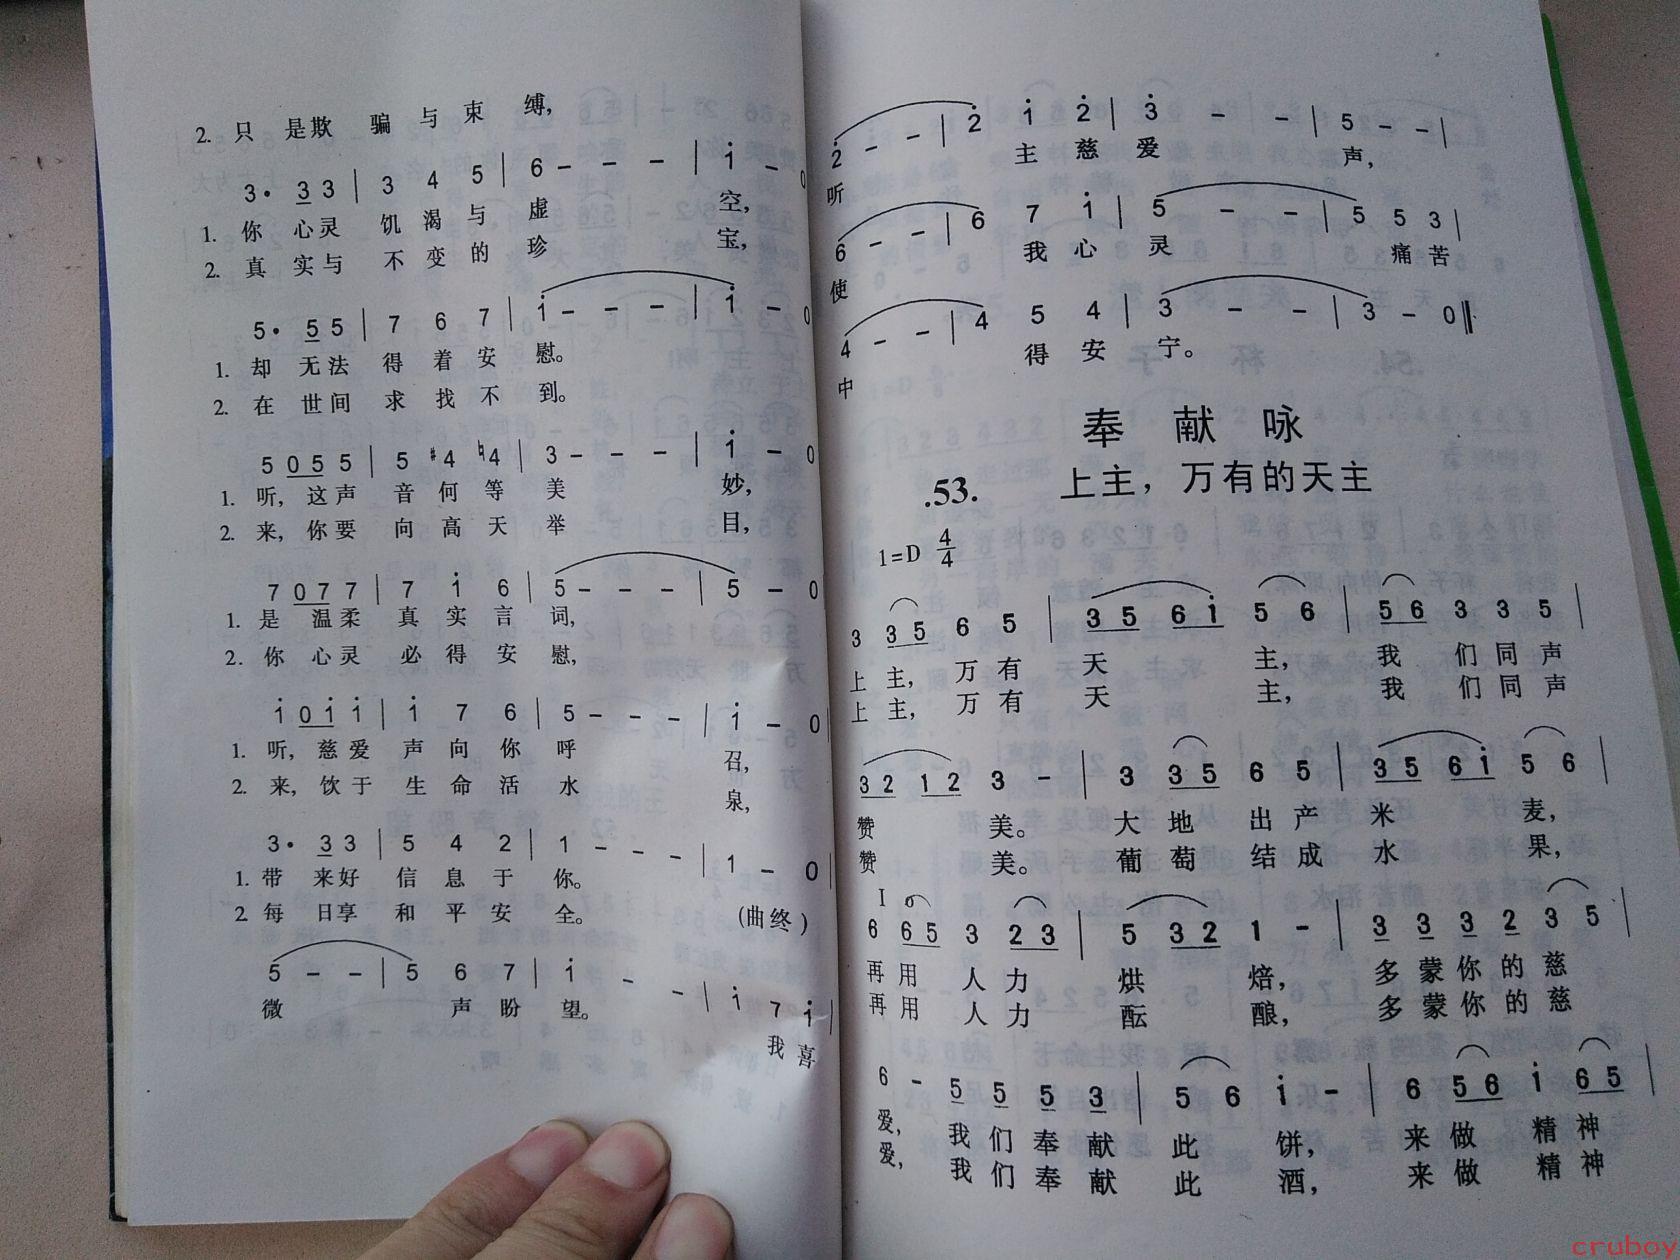 2. 只 是欺 骗 与 束 缚,
3· 3 3 | 3 4 5 | 6 - - - | i - 0
1. 你 心灵 饥 渴 与 虚 空,
2. 真 实与 不 变 的 珍 宝,
5· 5 5 | 7 6 7 | i - - - | i - 0
1. 却 无法 得 着 安 慰。
2. 在 世间 求 找 不 到。
5 0 5 5 | 5 #4 ♮4 | 3 - - - | i - 0
1. 听, 这声 音 何 等 美 妙,
2. 来, 你要 向 高 天 举 目,
7 0 7 7 | 7 i 6 | 5 - - - | 5 - 0
1. 是 温柔 真 实 言 词,
2. 你 心灵 必 得 安 慰,
i 0 i i | i 7 6 | 5 - - - | i - 0
1. 听, 慈爱 声 向 你 呼 召,
2. 来, 饮于 生 命 活 水 泉,
3· 3 3 | 5 4 2 | 1 - - - | 1 - 0
1. 带 来好 信 息 于 你。
2 每 日享 和 平 安 全。 (曲终)
5 - - | 5 6 7 | i - - | i 7 i |
微 声 盼 望。 我 喜
2 - - | 2 i 2 | 3 - - | 5 - - |
听 主 慈 爱 声,
6 - - | 6 7 i | 5 - - | 5 5 3 |
使 我 心 灵 痛 苦
4 - - | 4 5 4 | 3 - - | 3 - 0 ‖
中 得 安 宁。
奉 献 咏
.53. 上主，万有的天主
1=D 4/4
3 3 5 6 5 | 3 5 6 i 5 6 | 5 6 3 3 5 |
上 主, 万 有 天 主, 我 们 同 声
上 主, 万 有 天 主, 我 们 同 声
3 2 1 2 3 - | 3 3 5 6 5 | 3 5 6 i 5 6 |
赞 美。 大 地 出 产 米 麦,
赞 美。 葡 萄 结 成 水 果,
6 6 5 3 2 3 | 5 3 2 1 - | 3 3 3 2 3 5 |
再 用 人 力 烘 焙, 多 蒙 你 的 慈
再 用 人 力 酝 酿, 多 蒙 你 的 慈
6 - 5 5 5 3 | 5 6 i - | 6 5 6 i 6 5 |
爱, 我 们 奉 献 此 饼, 来 做 精 神
爱, 我 们 奉 献 此 酒, 来 做 精 神
cruboy